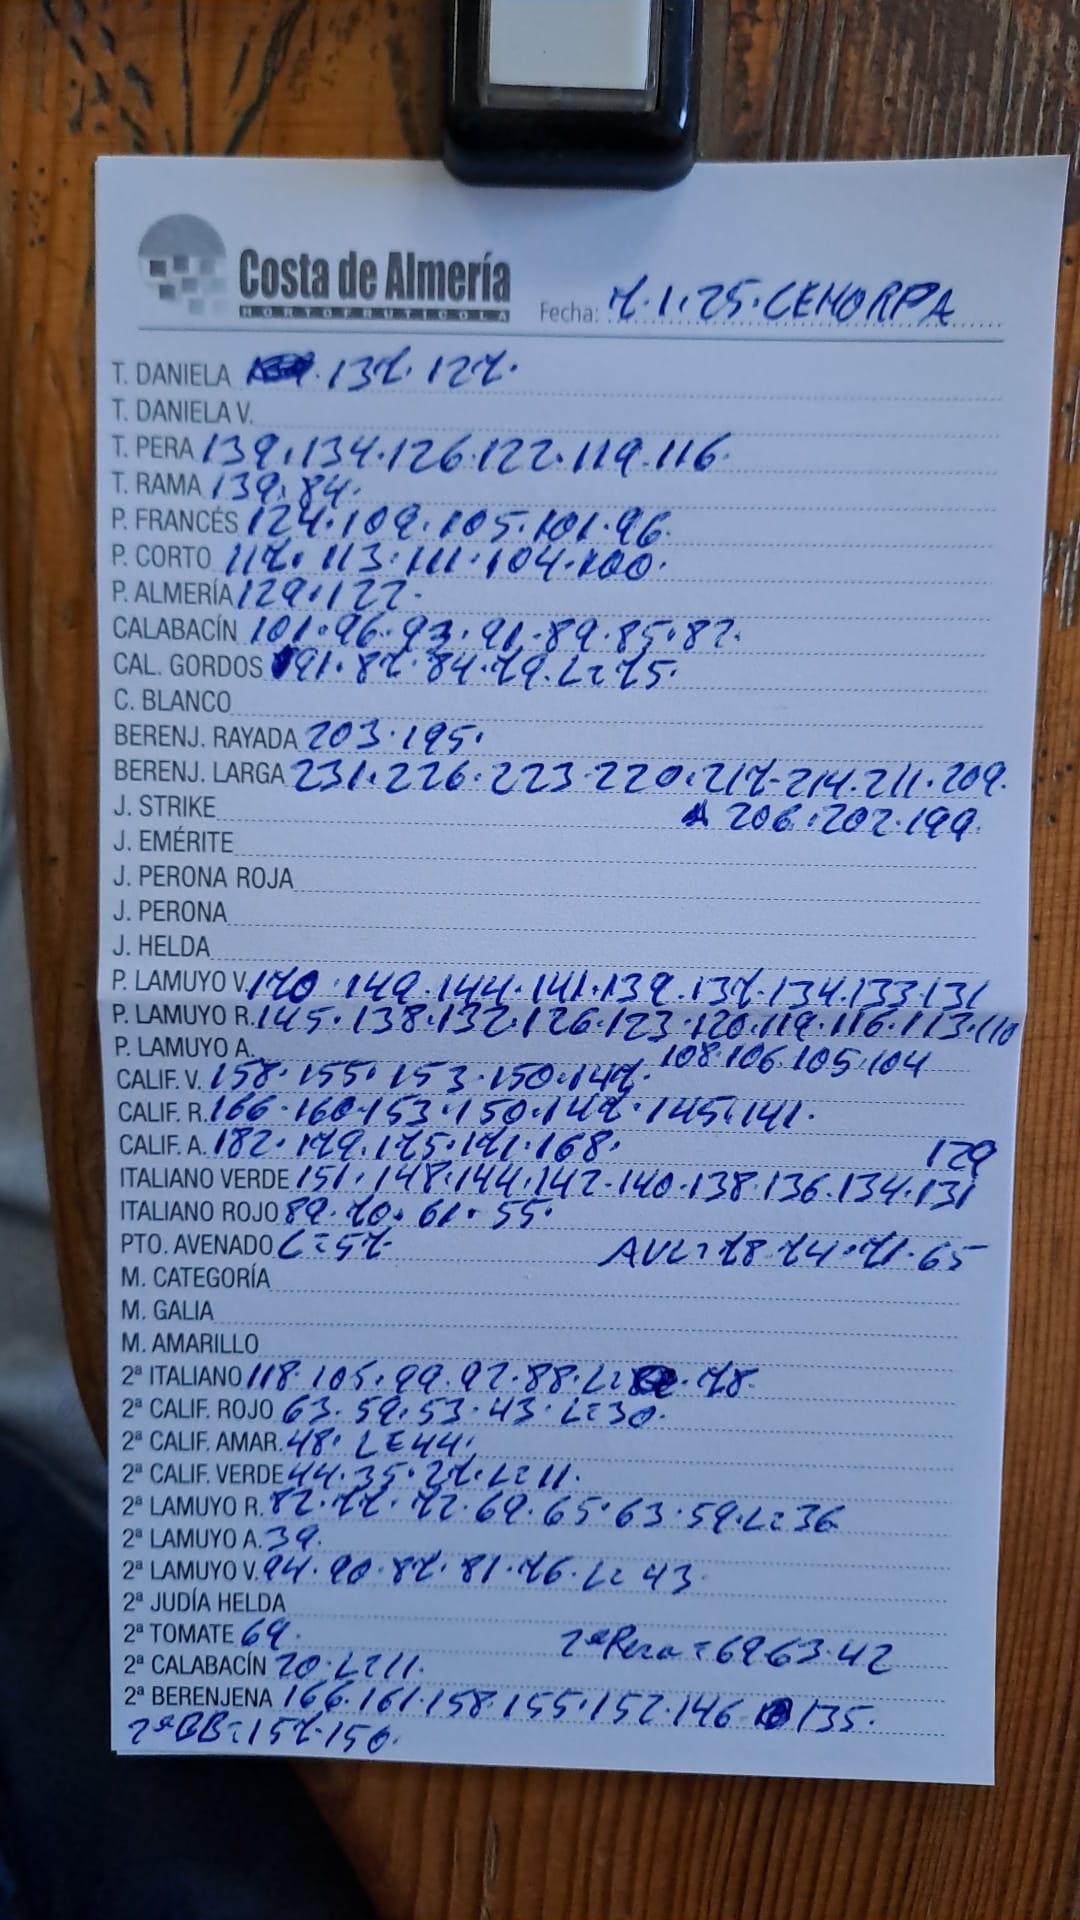 Costa de Almería
HORTOFRUTICOLA
Fecha: 7.1.25.CEHORPA
T. DANIELA 137.127.
T. DANIELA V.
T. PERA 139.134.126.122.119.116.
T. RAMA 139.84.
P. FRANCÉS 124.109.105.101.96.
P. CORTO 117.113.111.104.100.
P. ALMERÍA 129.122.
CALABACÍN 101.96.93.91.89.85.82.
CAL. GORDOS 91.87.84.79.L=75.
C. BLANCO
BERENJ. RAYADA 203.195.
BERENJ. LARGA 231.226.223.220.217-214.211.209.
J. STRIKE 206.202.199.
J. EMÉRITE
J. PERONA ROJA
J. PERONA
J. HELDA
P. LAMUYO V. 170.149.144.141.139.137.134.133.131
P. LAMUYO R. 145.138.132.126.123.120.119.116.113.110
P. LAMUYO A. 108.106.105.104
CALIF. V. 158.155.153.150.147.
CALIF. R. 166.160.153.150.147.145.141.
CALIF. A. 182.179.175.171.168. 129
ITALIANO VERDE 151.148.144.142.140.138.136.134.131
ITALIANO ROJO 89.70.61.55.
PTO. AVENADO L=57. AVL=78.74.71.65
M. CATEGORÍA
M. GALIA
M. AMARILLO
2ª ITALIANO 118.105.99.92.88.L= .78.
2ª CALIF. ROJO 63.59.53.43.L=30.
2ª CALIF. AMAR. 48.L=44.
2ª CALIF. VERDE 44.35.27.L=11.
2ª LAMUYO R. 82.77.72.69.65.63.59.L=36
2ª LAMUYO A. 39.
2ª LAMUYO V. 94.90.87.81.76.L=43
2ª JUDÍA HELDA
2ª TOMATE 69. 2ª Pera=69.63.42
2ª CALABACÍN 20.L=11.
2ª BERENJENA 166.161.158.155.152.146 135.
2ª BB=157.150.